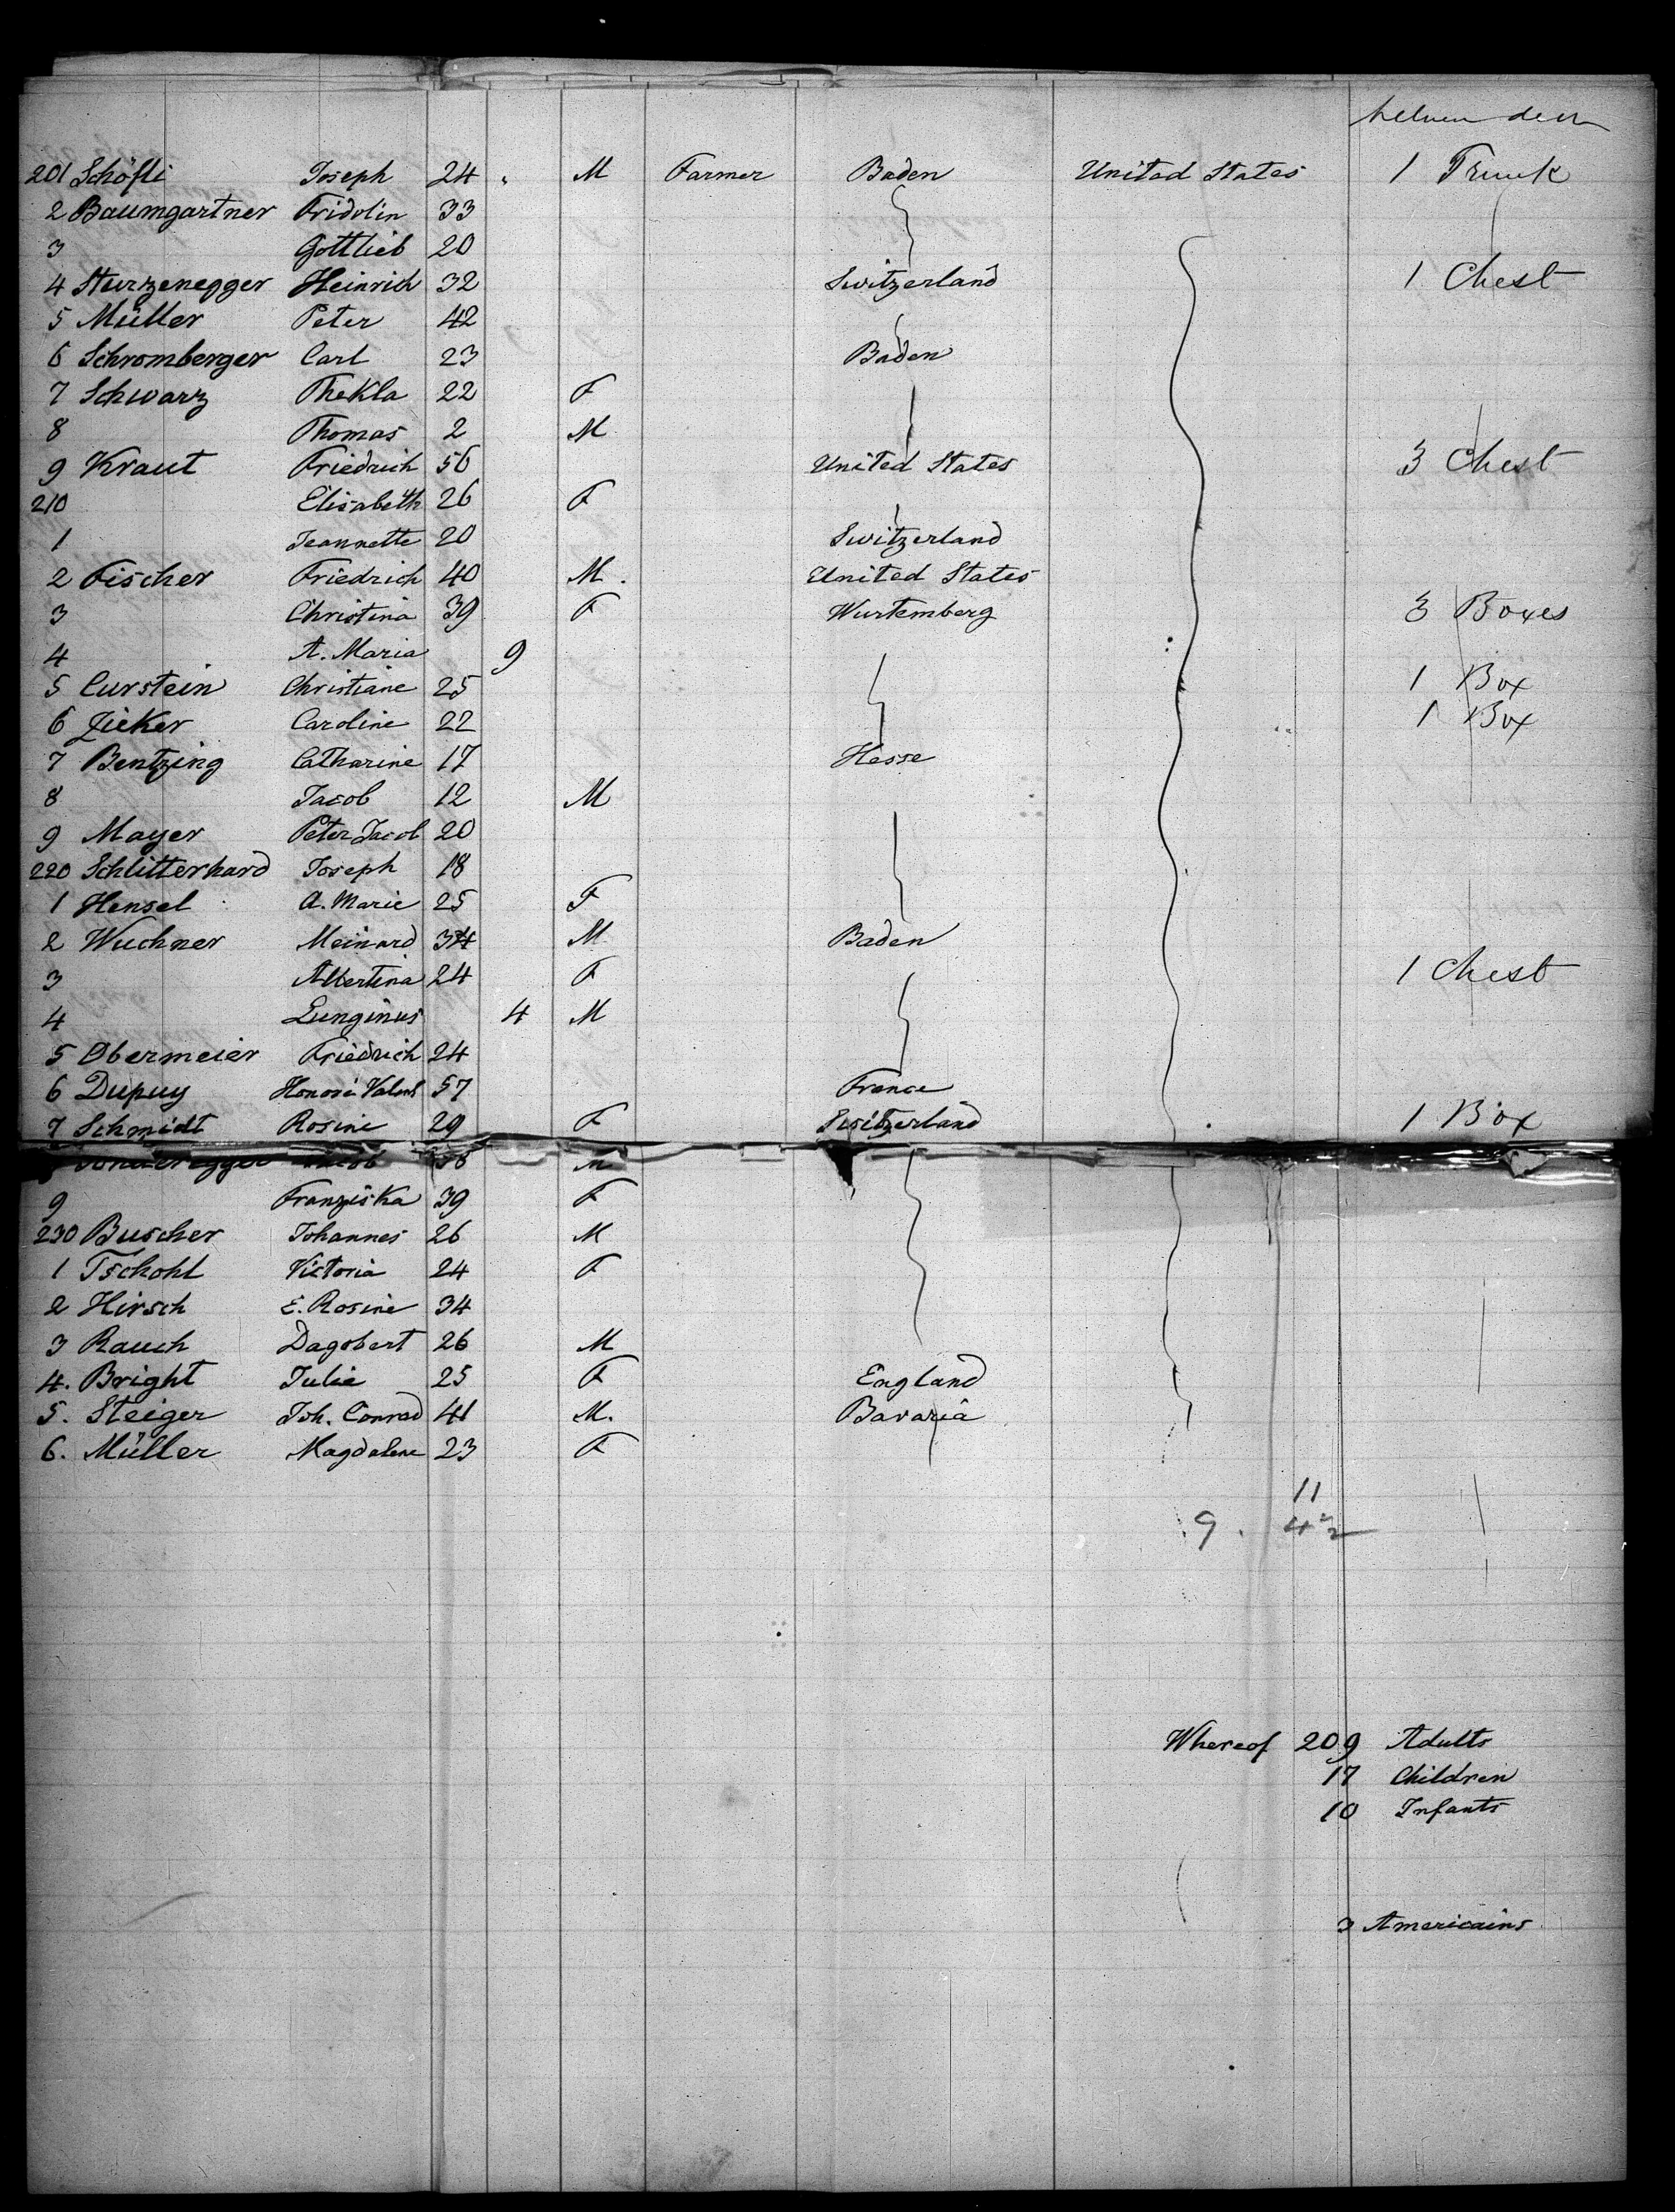 between deck
201 Schöfli Joseph 24 " M Farmer Baden United States 1 Trunk
2 Baumgartner Fridolin 33
3 Gottlieb 20
4 Sturzenegger Heinrich 32 Switzerland 1 Chest
5 Müller Peter 42
6 Schromberger Carl 23 Baden
7 Schwarz Thekla 22 F
8 Thomas 2 M
9 Kraut Friedrich 56 United States 3 Chest
210 Elisabeth 26 F
1 Jeannette 20 Switzerland
2 Fischer Friedrich 40 M. United States
3 Christina 39 F Wurtemberg 3 Boxes
4 A. Maria 9
5 Curstein Christiane 25 1 Box
6 Zicker Caroline 22 1 Box
7 Bentzing Catharine 17 Hesse
8 Jacob 12 M
9 Mayer Peter Jacob 20
220 Schlitterhard Joseph 18
1 Hensel A. Marie 25 F
2 Wuchner Meinard 34 M Baden
3 Albertina 24 F 1 Chest
4 Lunginus 4 M
5 Obermeier Friedrich 24
6 Dupuy Honoré 57 France
7 Schmidt Rosine 29 F Switzerland 1 Box
Jacob M
9 Franziska 39 F
230 Buscher Johannes 26 M
1 Tschohl Victoria 24 F
2 Hirsch E. Rosine 34
3 Rauch Dagobert 26 M
4. Bright Julie 25 F England
5. Steiger Joh. Conrad 41 M. Bavaria
6. Müller Magdalene 23 F
11
9. 4½
Whereof 209 Adults
17 Children
10 Infants
3 Americains